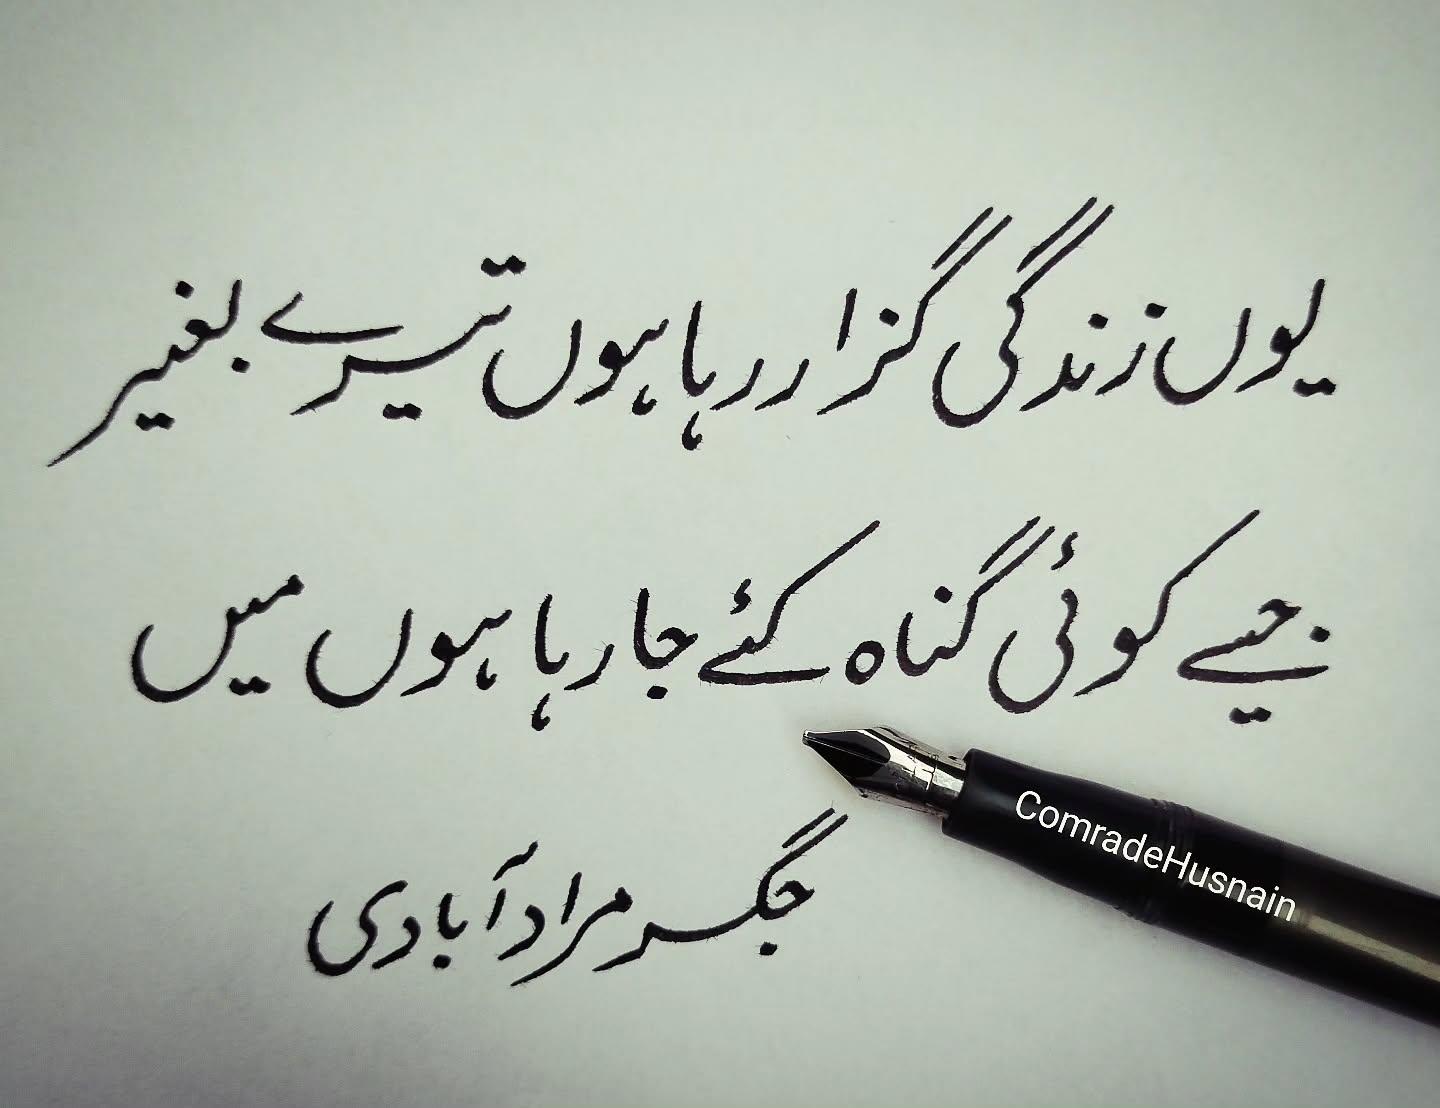 یوں زندگی گزار رہا ہوں تیرے بغیر
جیسے کوئی گناہ کئے جا رہا ہوں میں
جگر مراد آبادی
ComradeHusnain